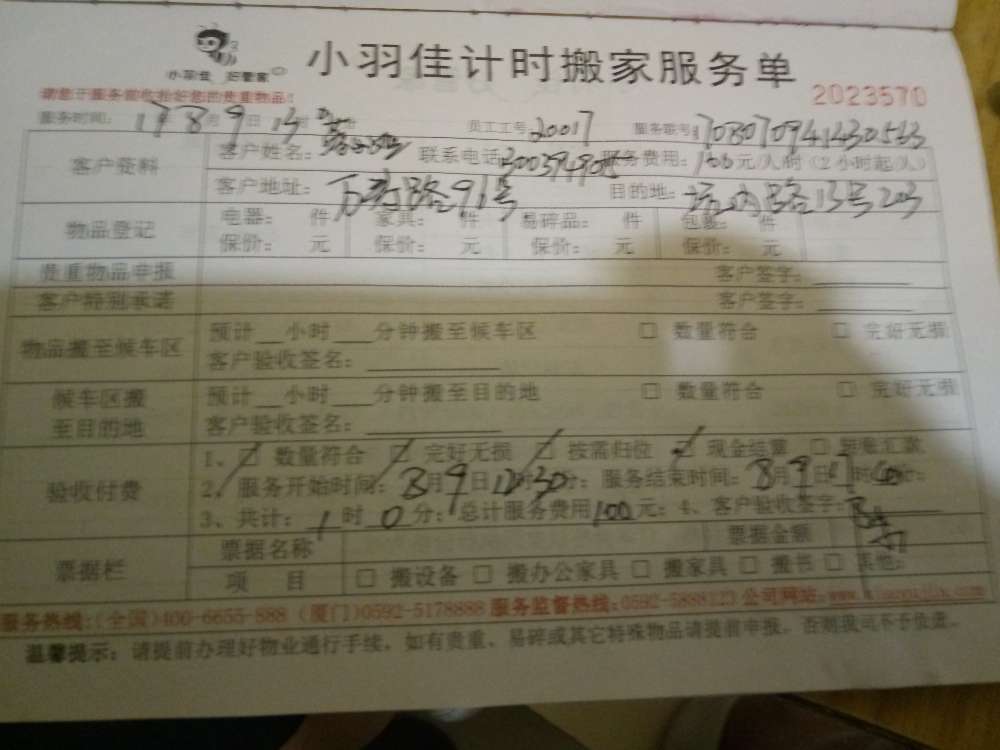 小羽佳 好管家
小羽佳计时搬家服务单
请您于服务前收拾好您的贵重物品!
2023570
服务时间: 17 8月9日13时 分 员工工号 20017 服务联号
客户资料
客户姓名: 联系电话 服务费用:100元/人/时(2小时起/人)
客户地址:万寿路91号 目的地: 路13号203
物品登记
电器: 件 家具: 件 易碎品: 件 包裹: 件
保价: 元 保价: 元 保价: 元 保价: 元
贵重物品申报 客户签字:
客户特别承诺 客户签字:
物品搬至候车区
预计__小时___分钟搬至候车区 □ 数量符合 □ 完好无损
客户验收签名:
候车区搬至目的地
预计__小时___分钟搬至目的地 □ 数量符合 □ 完好无损
客户验收签名:
验收付费
1、□ 数量符合 □ 完好无损 □ 按需归位 □ 现金结算 □ 转账汇款
2、服务开始时间:8月9日12时30分;服务结束时间:8月9日17时 分;
3、共计:1时0分;总计服务费用100元;4、客户验收签字:
票据栏
票据名称 票据金额
项 目 □ 搬设备 □ 搬办公家具 □ 搬家具 □ 搬书 □ 其他:
服务热线:(全国)400-6655-888 (厦门)0592-5178888 服务监督热线:0592-5888123 公司网站:
温馨提示:请提前办理好物业通行手续,如有贵重、易碎或其它特殊物品请提前申报,否则我司不予负责。